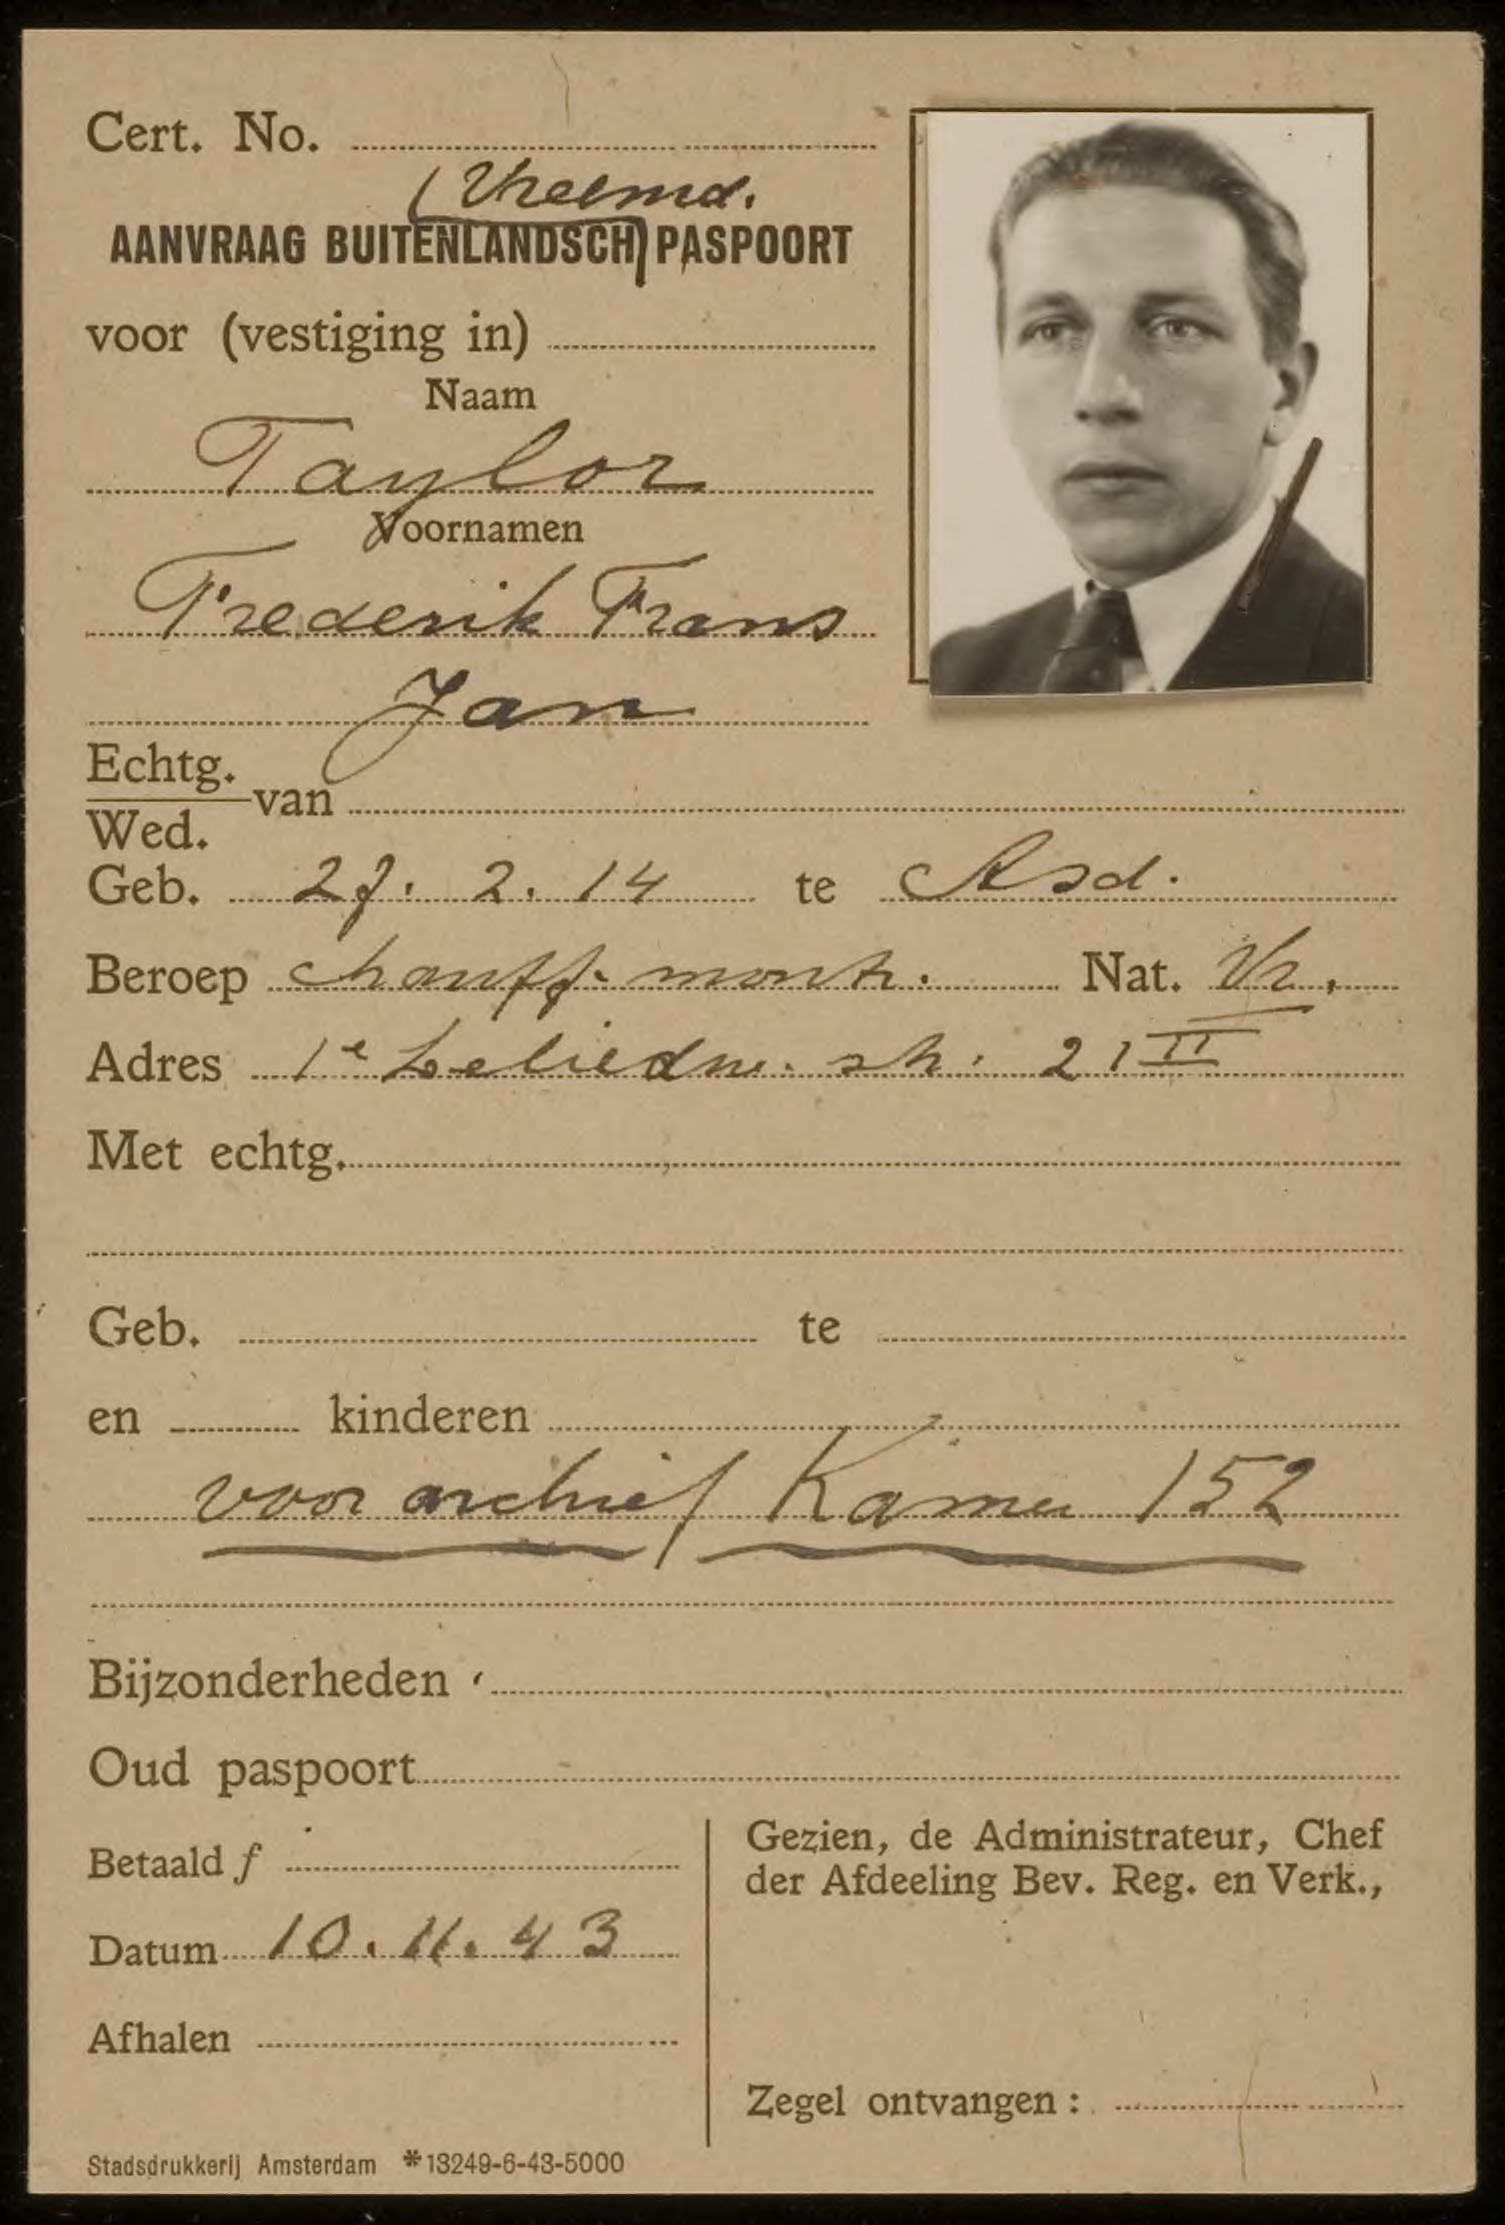 Cert. No.
(Vreemd.
AANVRAAG BUITENLANDSCH) PASPOORT
voor (vestiging in)
Naam
Taylor
Voornamen
Frederik Frans
Jan
Echtg.
van
Wed.
Geb. 27. 2. 14 te Asd.
Beroep chauff. mont. Nat. Vr.
Adres 1e Leliedw. st. 21 II
Met echtg.
Geb. te
en kinderen
voor archief Kamer 152
Bijzonderheden
Oud paspoort
Betaald f
Datum 10. 11. 43
Afhalen
Gezien, de Administrateur, Chef
der Afdeeling Bev. Reg. en Verk.,
Zegel ontvangen :
Stadsdrukkerij Amsterdam *13249-6-43-5000